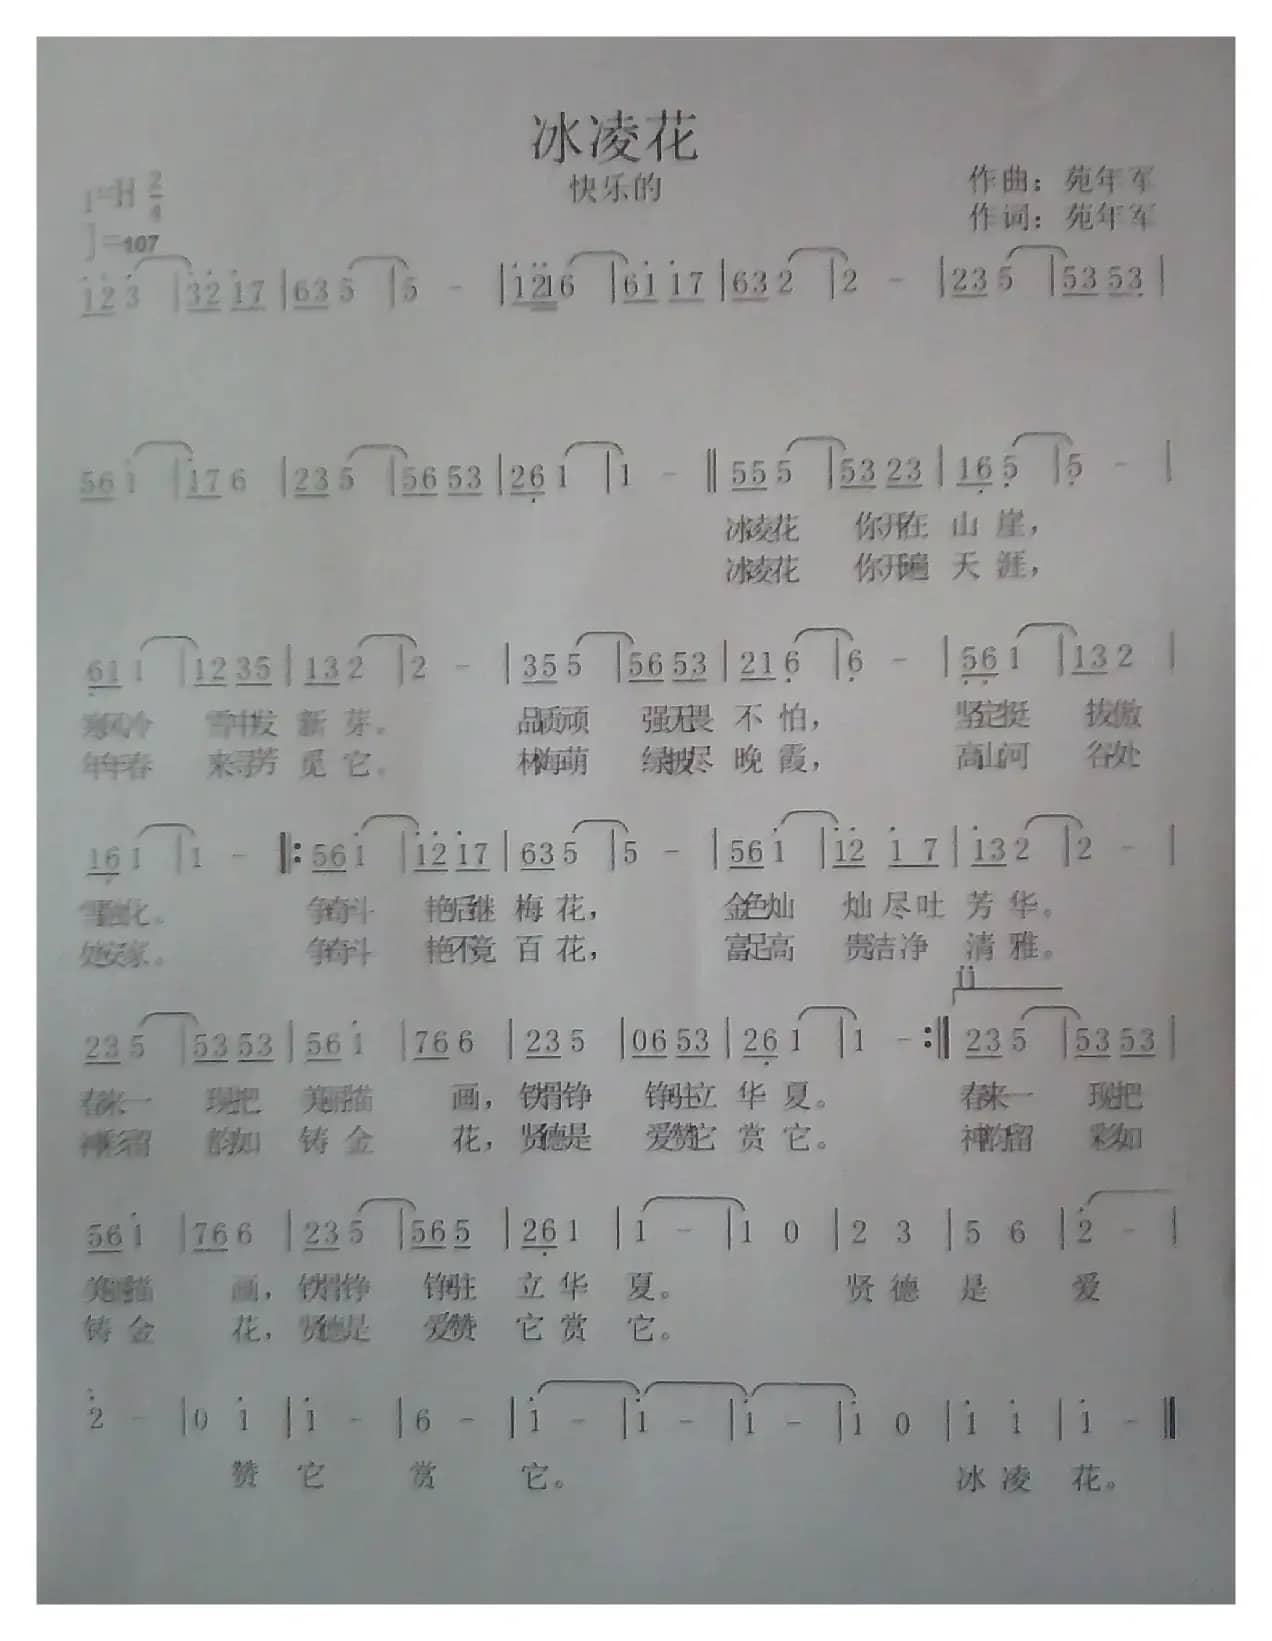 冰凌花
快乐的
1=H 2/4
作曲：苑年军
作词：苑年军
♩=107
123 |32 17 |63 5 |5 - |1216 |61 17 |63 2 |2 - |23 5 |53 53 |
56 1 |17 6 |23 5 |56 53 |26 1 |1 - ‖55 5 |53 23 |16 5 |5 - |
冰凌花 你开在 山 崖，
冰凌花 你开遍 天 涯，
61 1 |12 35 |13 2 |2 - |35 5 |56 53 |21 6 |6 - |56 1 |13 2 |
寒风冷 雪中发 新 芽。 品质顽 强无畏 不 怕， 坚定挺 拔傲
年年春 来寻芳 觅 它。 林海萌 绿披尽 晚 霞， 高山河 谷处
16 1 |1 - ‖:56 1 |12 17 |63 5 |5 - |56 1 |12 1 7 |13 2 |2 - |
雪融化。 争奇斗 艳后继 梅 花， 金色灿 灿尽吐 芳 华。
处安家。 争奇斗 艳不竞 百 花， 富足高 贵洁净 清 雅。
23 5 |53 53 |56 1 |76 6 |23 5 |06 53 |26 1 |1 - :‖ 23 5 |53 53 |
春来一 现把 美丽描 画， 铁骨铮 铮驻立 华 夏。 春来一 现把
神彩留 韵如 铸 金 花， 贤德是 爱赞它 赏 它。 神韵留 彩如
56 1 |76 6 |23 5 |56 5 |26 1 |1 - |1 0 |2 3 |5 6 |2 - |
美丽描 画， 铁骨铮 铮驻 立 华 夏。 贤 德 是 爱
铸 金 花， 贤德是 爱赞 它 赏 它。
2 - |0 1 |1 - |6 - |1 - |1 - |1 - |1 0 |1 1 |1 - ‖
赞 它 赏 它。 冰 凌 花。